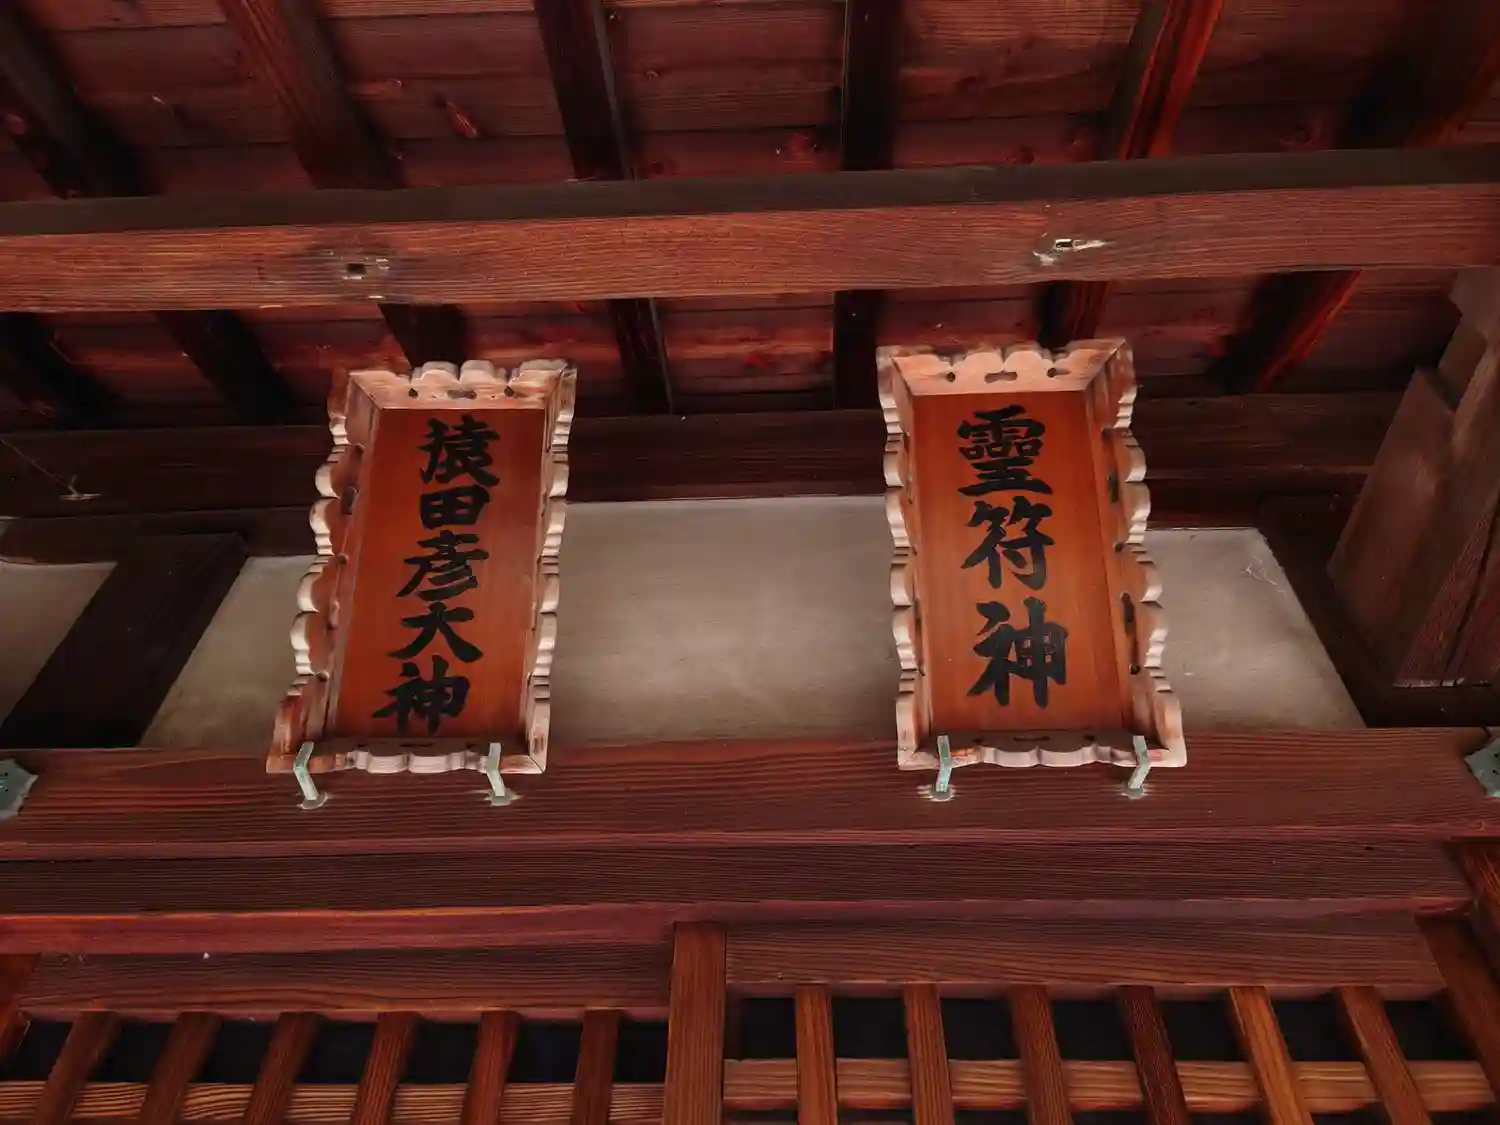 靈符神
猿田彦大神